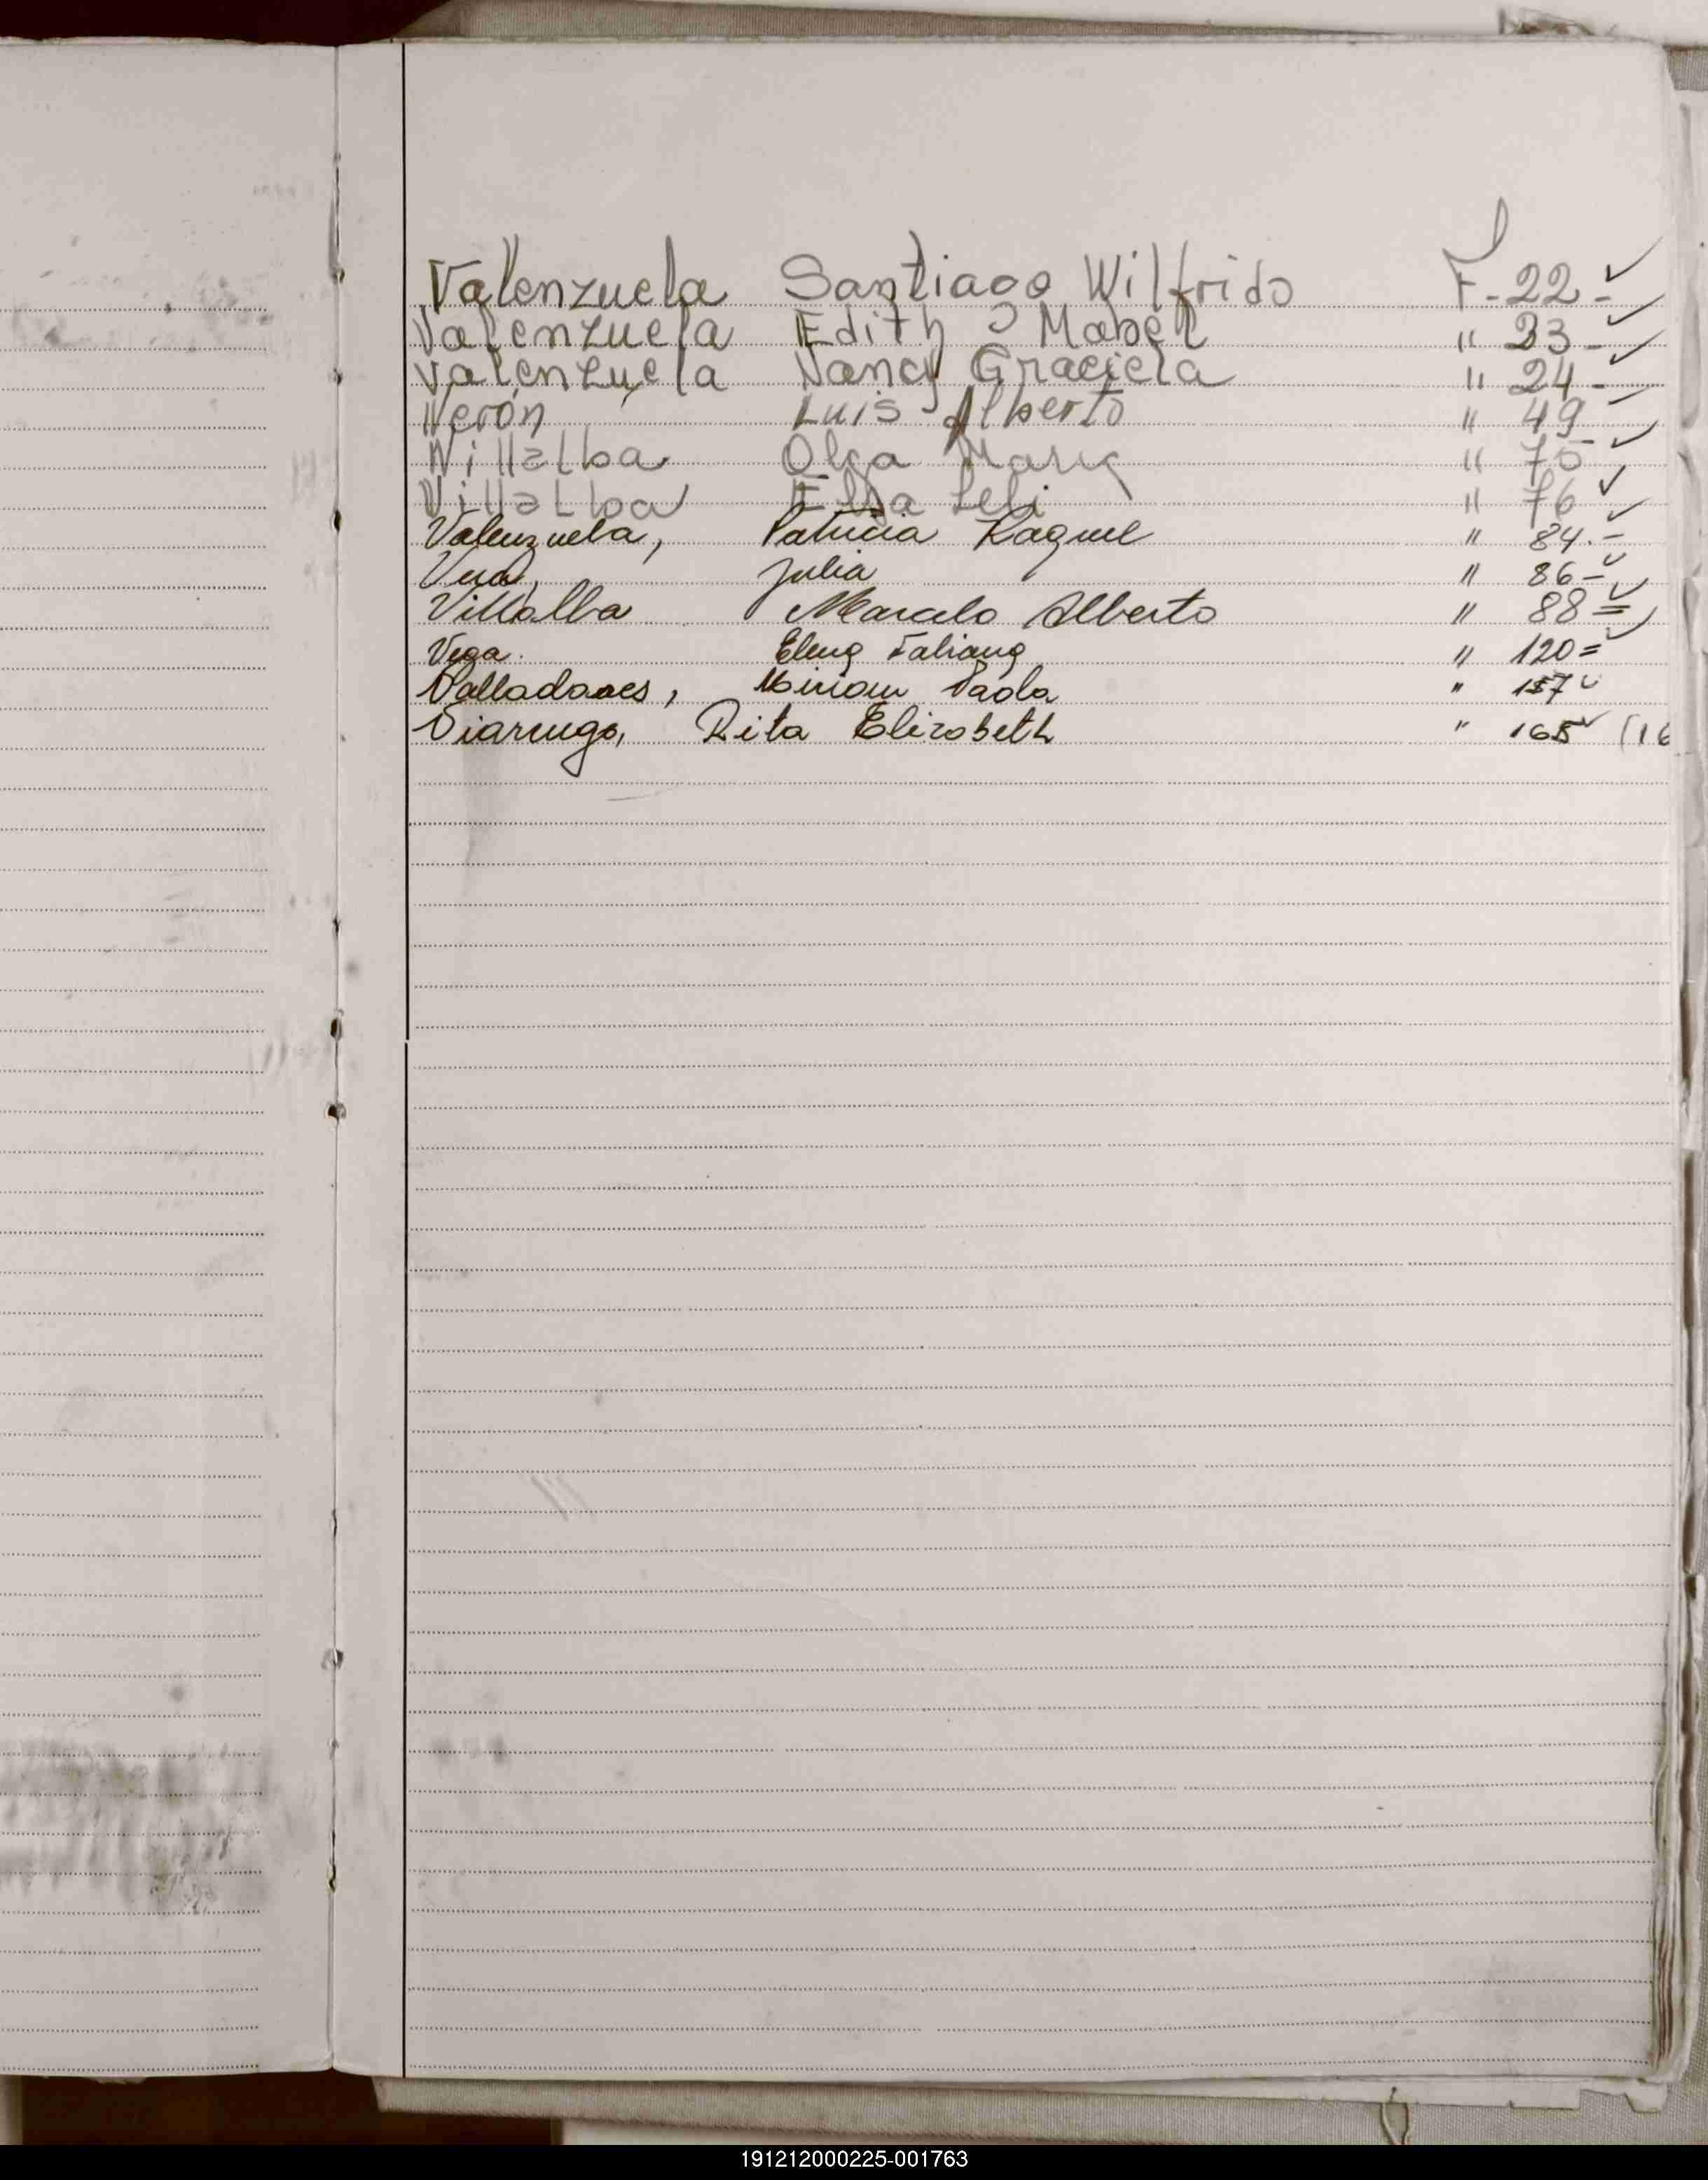 Valenzuela Santiago Wilfrido F. 22-
Valenzuela Edith Mabel " 23-
Valenzuela Nancy Graciela " 24-
Verón Luis Alberto " 49-
Villalba Olga María " 75-
Villalba Elsa Leli " 76
Valenzuela, Patricia Raquel " 84.-
Vera, Julia " 86-
Villalba Marcelo Alberto " 88=
Vega. Elena Fabiana " 120=
Valladares, Miriam Paola " 157
Rita Elizabeth " 165 (16
191212000225-001763